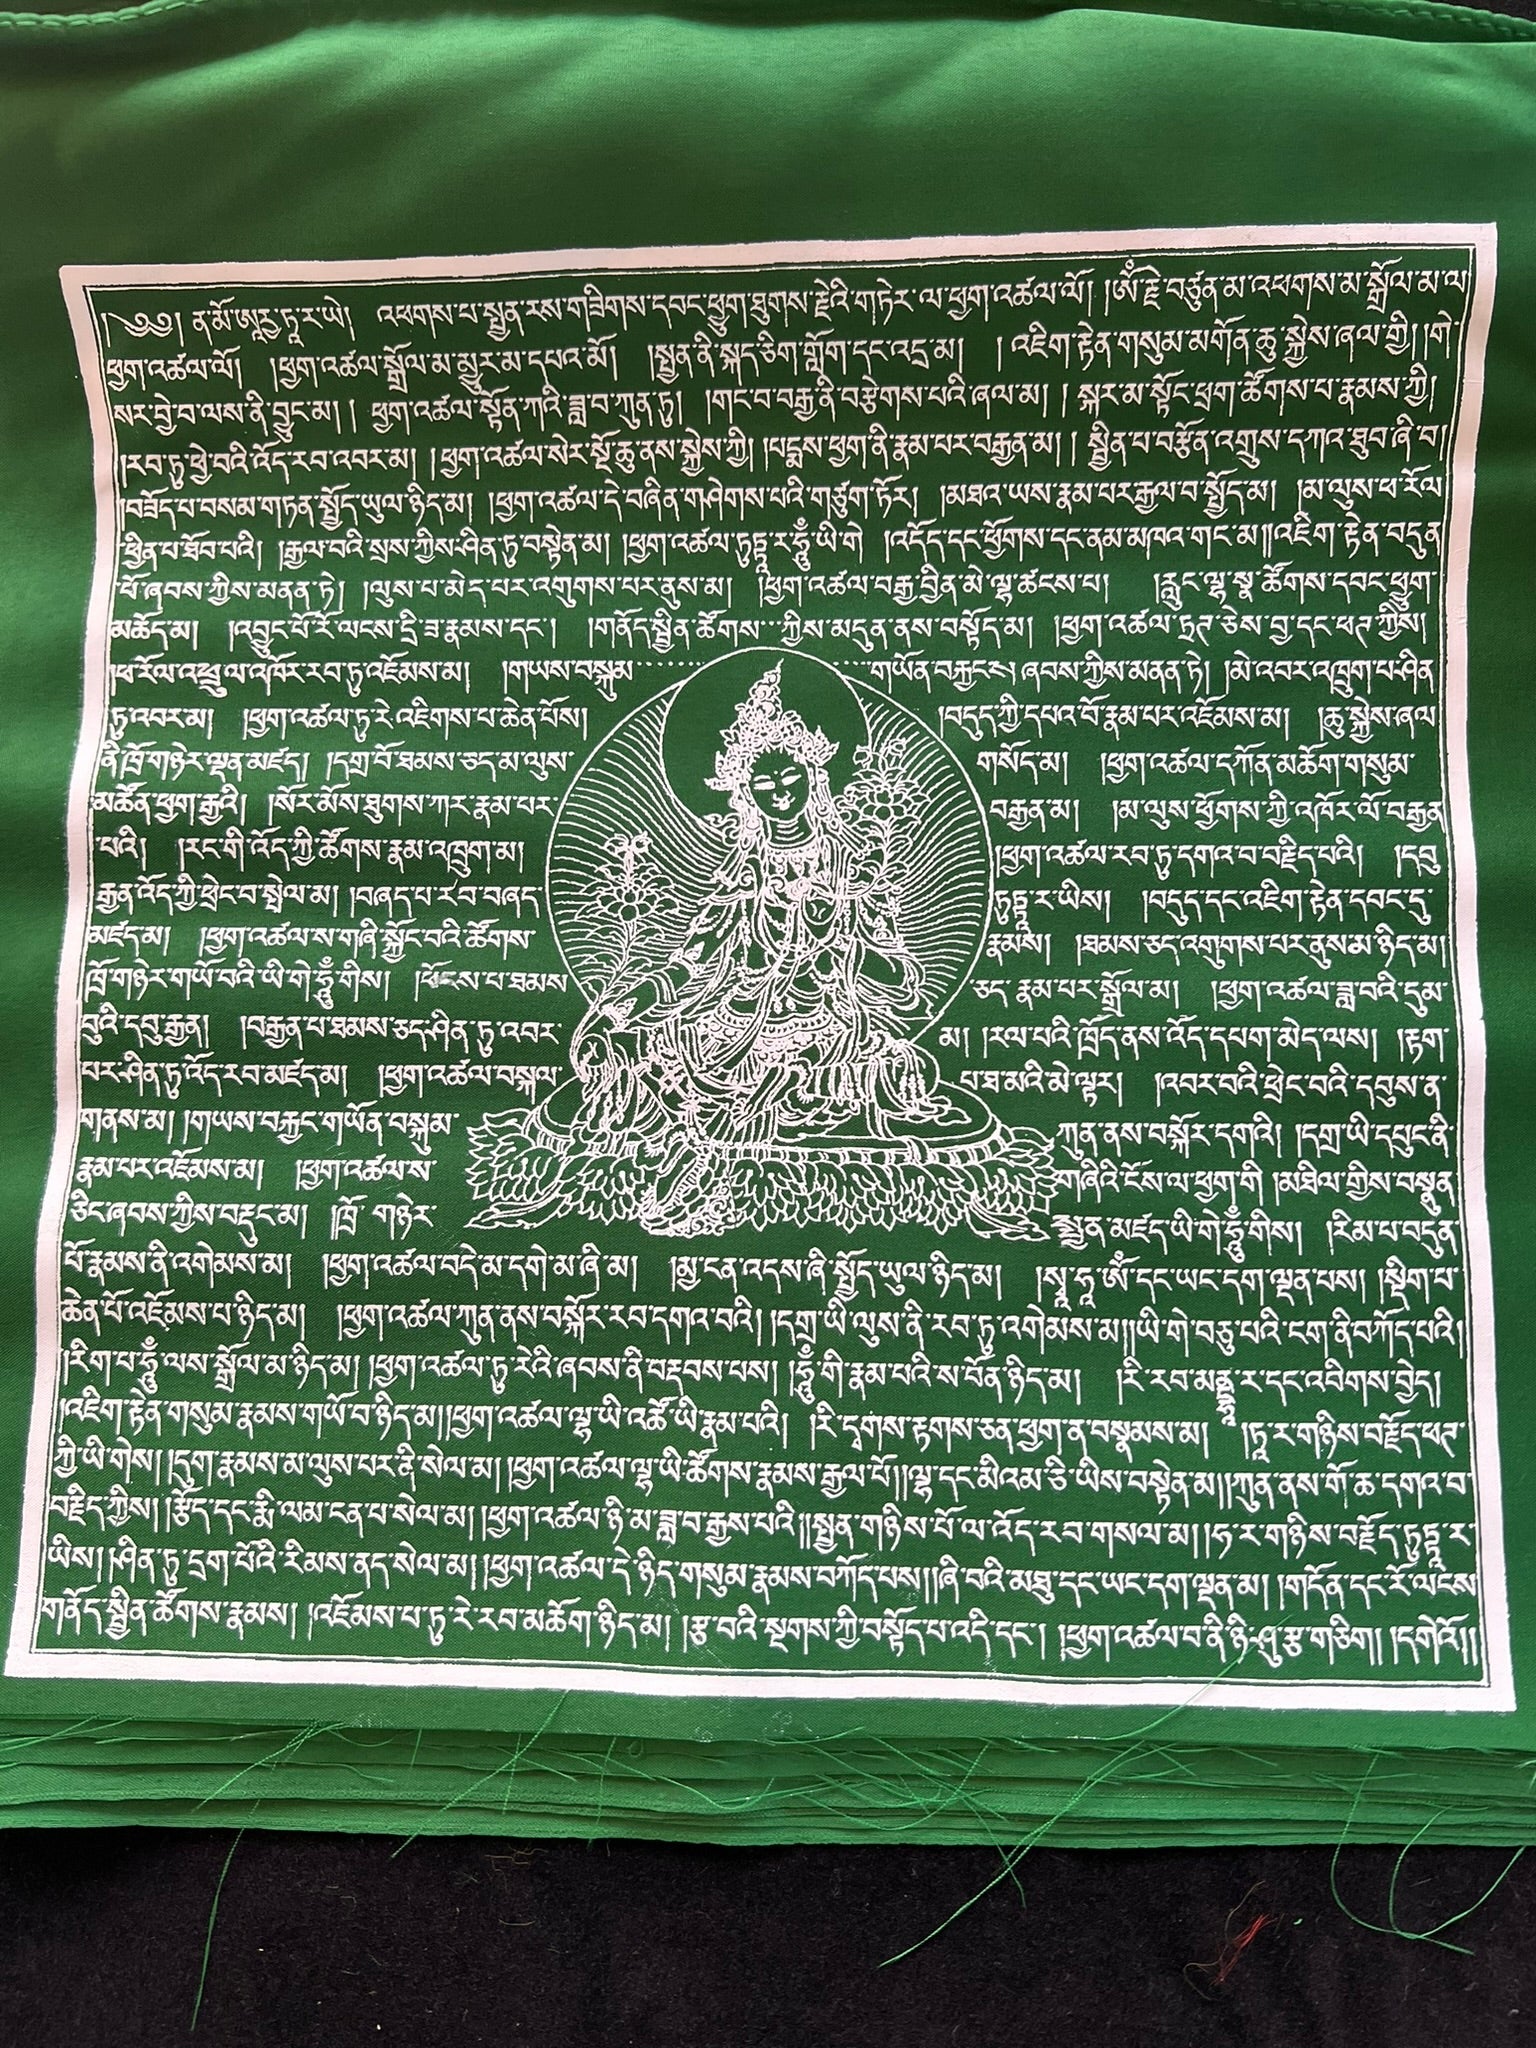 །༄༅། ན་མོ་ཨཱརྱ་ཏཱ་ར་ཡེ། འཕགས་པ་སྤྱན་རས་གཟིགས་དབང་ཕྱུག་ཐུགས་རྗེའི་གཏེར་ལ་ཕྱག་འཚལ་ལོ། །ཨོཾ་རྗེ་བཙུན་མ་འཕགས་མ་སྒྲོལ་མ་ལ
ཕྱག་འཚལ་ལོ། །ཕྱག་འཚལ་སྒྲོལ་མ་མྱུར་མ་དཔའ་མོ། །སྤྱན་ནི་སྐད་ཅིག་གློག་དང་འདྲ་མ། །འཇིག་རྟེན་གསུམ་མགོན་ཆུ་སྐྱེས་ཞལ་གྱི། །གེ་
སར་བྱེ་བ་ལས་ནི་བྱུང་མ། ། ཕྱག་འཚལ་སྟོན་ཀའི་ཟླ་བ་ཀུན་ཏུ། །གང་བ་བརྒྱ་ནི་བརྩེགས་པའི་ཞལ་མ། ། སྐར་མ་སྟོང་ཕྲག་ཚོགས་པ་རྣམས་ཀྱི།
།རབ་ཏུ་ཕྱེ་བའི་འོད་རབ་འབར་མ། །ཕྱག་འཚལ་སེར་སྔོ་ཆུ་ནས་སྐྱེས་ཀྱི། །པདྨས་ཕྱག་ནི་རྣམ་པར་བརྒྱན་མ། ། སྦྱིན་པ་བརྩོན་འགྲུས་དཀའ་ཐུབ་ཞི་བ།
།བཟོད་པ་བསམ་གཏན་སྤྱོད་ཡུལ་ཉིད་མ། །ཕྱག་འཚལ་དེ་བཞིན་གཤེགས་པའི་གཙུག་ཏོར། །མཐའ་ཡས་རྣམ་པར་རྒྱལ་བ་སྤྱོད་མ། །མ་ལུས་ཕ་རོལ
་ཕྱིན་པ་ཐོབ་པའི། །རྒྱལ་བའི་སྲས་ཀྱིས་ཤིན་ཏུ་བསྟེན་མ། །ཕྱག་འཚལ་ཏུཏྟཱ་ར་ཧཱུྃ་ཡི་གེ །འདོད་དང་ཕྱོགས་དང་ནམ་མཁའ་གང་མ། །འཇིག་རྟེན་བདུན
་ཕོ་ཞབས་ཀྱིས་མནན་ཏེ། །ལུས་པ་མེད་པར་འགུགས་པར་ནུས་མ། །ཕྱག་འཚལ་བརྒྱ་བྱིན་མེ་ལྷ་ཚངས་པ། །རླུང་ལྷ་སྣ་ཚོགས་དབང་ཕྱུག་
མཆོད་མ། །འབྱུང་པོ་རོ་ལངས་དྲི་ཟ་རྣམས་དང་། །གནོད་སྦྱིན་ཚོགས་་་ཀྱིས་མདུན་ནས་བསྟོད་མ། །ཕྱག་འཚལ་ཏྲཊ་ཅེས་བྱ་དང་ཕཊ་ཀྱིས།
།ཕ་རོལ་འཕྲུལ་འཁོར་རབ་ཏུ་འཇོམས་མ། །གཡས་བསྐུམ་་་་་་་་་གཡོན་བརྐྱངས། ཞབས་ཀྱིས་མནན་ཏེ། །མེ་འབར་འཁྲུག་པ་ཤིན
ཏུ་འབར་མ། །ཕྱག་འཚལ་ཏུ་རེ་འཇིགས་པ་ཆེན་པོས། །བདུད་ཀྱི་དཔའ་བོ་རྣམ་པར་འཇོམས་མ། །ཆུ་སྐྱེས་ཞལ
ནི་ཁྲོ་གཉེར་ལྡན་མཛད། །དགྲ་བོ་ཐམས་ཅད་མ་ལུས་ གསོད་མ། །ཕྱག་འཚལ་དཀོན་མཆོག་གསུམ་
མཚོན་ཕྱག་རྒྱའི། །སོར་མོས་ཐུགས་ཀར་རྣམ་པར་ བརྒྱན་མ། །མ་ལུས་ཕྱོགས་ཀྱི་འཁོར་ལོ་བརྒྱན
་པའི། །རང་གི་འོད་ཀྱི་ཚོགས་རྣམ་འཁྲུག་མ། །ཕྱག་འཚལ་རབ་ཏུ་དགའ་བ་བརྗིད་པའི། །དབུ
རྒྱན་འོད་ཀྱི་ཕྲེང་བ་སྤེལ་མ། །བཞད་པ་རབ་བཞད་ ཏུཏྟཱ་ར་ཡིས། །བདུད་དང་འཇིག་རྟེན་དབང་དུ་
མཛད་མ། །ཕྱག་འཚལ་ས་གཞི་སྐྱོང་བའི་ཚོགས་ རྣམས། །ཐམས་ཅད་འགུགས་པར་ནུས་མ་ཉིད་མ།
ཁྲོ་གཉེར་གཡོ་བའི་ཡི་གེ་ཧཱུྃ་གིས། །ཕོངས་པ་ཐམས ་ཅད་རྣམ་པར་སྒྲོལ་མ། །ཕྱག་འཚལ་ཟླ་བའི་དུམ་
བུའི་དབུ་རྒྱན། །བརྒྱན་པ་ཐམས་ཅད་ཤིན་ཏུ་འབར་ མ། །རལ་པའི་ཁྲོད་ནས་འོད་དཔག་མེད་ལས། །རྟག་
པར་ཤིན་ཏུ་འོད་རབ་མཛད་མ། །ཕྱག་འཚལ་བསྐལ་ པ་ཐ་མའི་མེ་ལྟར། །འབར་བའི་ཕྲེང་བའི་དབུས་ན་
གནས་མ། །གཡས་བརྐྱང་གཡོན་བསྐུམ་ ཀུན་ནས་བསྐོར་དགའི། །དགྲ་ཡི་དཔུང་ནི་
རྣམ་པར་འཇོམས་མ། །ཕྱག་འཚལ་ས་ གཞིའི་ངོས་ལ་ཕྱག་གི །མཐིལ་གྱིས་བསྣུན
ཅིང་ཞབས་ཀྱིས་བརྡུང་མ། །ཁྲོ་ གཉེར་ སྤྱན་མཛད་ཡི་གེ་ཧཱུྃ་གིས། །རིམ་པ་བདུན
པོ་རྣམས་ནི་འགེམས་མ། །ཕྱག་འཚལ་བདེ་མ་དགེ་མ་ཞི་མ། །མྱ་ངན་འདས་ཞི་སྤྱོད་ཡུལ་ཉིད་མ། །སྭཱ་ཧཱ་ཨོཾ་དང་ཡང་དག་ལྡན་པས། །སྡིག་པ་
ཆེན་པོ་འཇོམས་པ་ཉིད་མ། །ཕྱག་འཚལ་ཀུན་ནས་བསྐོར་རབ་དགའ་བའི། །དགྲ་ཡི་ལུས་ནི་རབ་ཏུ་འགེམས་མ། །ཡི་གེ་བཅུ་པའི་ངག་ནི་བཀོད་པའི།
།རིག་པ་ཧཱུྃ་ལས་སྒྲོལ་མ་ཉིད་མ། །ཕྱག་འཚལ་ཏུ་རེའི་ཞབས་ནི་བརྡབས་པས། །ཧཱུྃ་གི་རྣམ་པའི་ས་བོན་ཉིད་མ། །རི་རབ་མནྡྷཱ་ར་དང་འབིགས་བྱེད།
།འཇིག་རྟེན་གསུམ་རྣམས་གཡོ་བ་ཉིད་མ། །ཕྱག་འཚལ་ལྷ་ཡི་འཚོ་ཡི་རྣམ་པའི། །རི་དྭགས་རྟགས་ཅན་ཕྱག་ན་བསྣམས་མ། །ཏཱ་ར་གཉིས་བརྗོད་ཕཊ་
ཀྱི་ཡི་གེས། །དུག་རྣམས་མ་ལུས་པར་ནི་སེལ་མ། །ཕྱག་འཚལ་ལྷ་ཡི་ཚོགས་རྣམས་རྒྱལ་པོ། །ལྷ་དང་མིའམ་ཅི་ཡིས་བསྟེན་མ། །ཀུན་ནས་གོ་ཆ་དགའ་བ་
བརྗིད་ཀྱིས། །རྩོད་དང་རྨི་ལམ་ངན་པ་སེལ་མ། །ཕྱག་འཚལ་ཉི་མ་ཟླ་བ་རྒྱས་པའི། །སྤྱན་གཉིས་པོ་ལ་འོད་རབ་གསལ་མ། །ཧ་ར་གཉིས་བརྗོད་ཏུཏྟཱ་ར་
ཡིས། །ཤིན་ཏུ་དྲག་པོའི་རིམས་ནད་སེལ་མ། །ཕྱག་འཚལ་དེ་ཉིད་གསུམ་རྣམས་བཀོད་པས། །ཞི་བའི་མཐུ་དང་ཡང་དག་ལྡན་མ། །གདོན་དང་རོ་ལངས
གནོད་སྦྱིན་ཚོགས་རྣམས། །འཇོམས་པ་ཏུ་རེ་རབ་མཆོག་ཉིད་མ། །རྩ་བའི་སྔགས་ཀྱི་བསྟོད་པ་འདི་དང་། །ཕྱག་འཚལ་བ་ནི་ཉི་ཤུ་རྩ་གཅིག། །དགེའོ།།